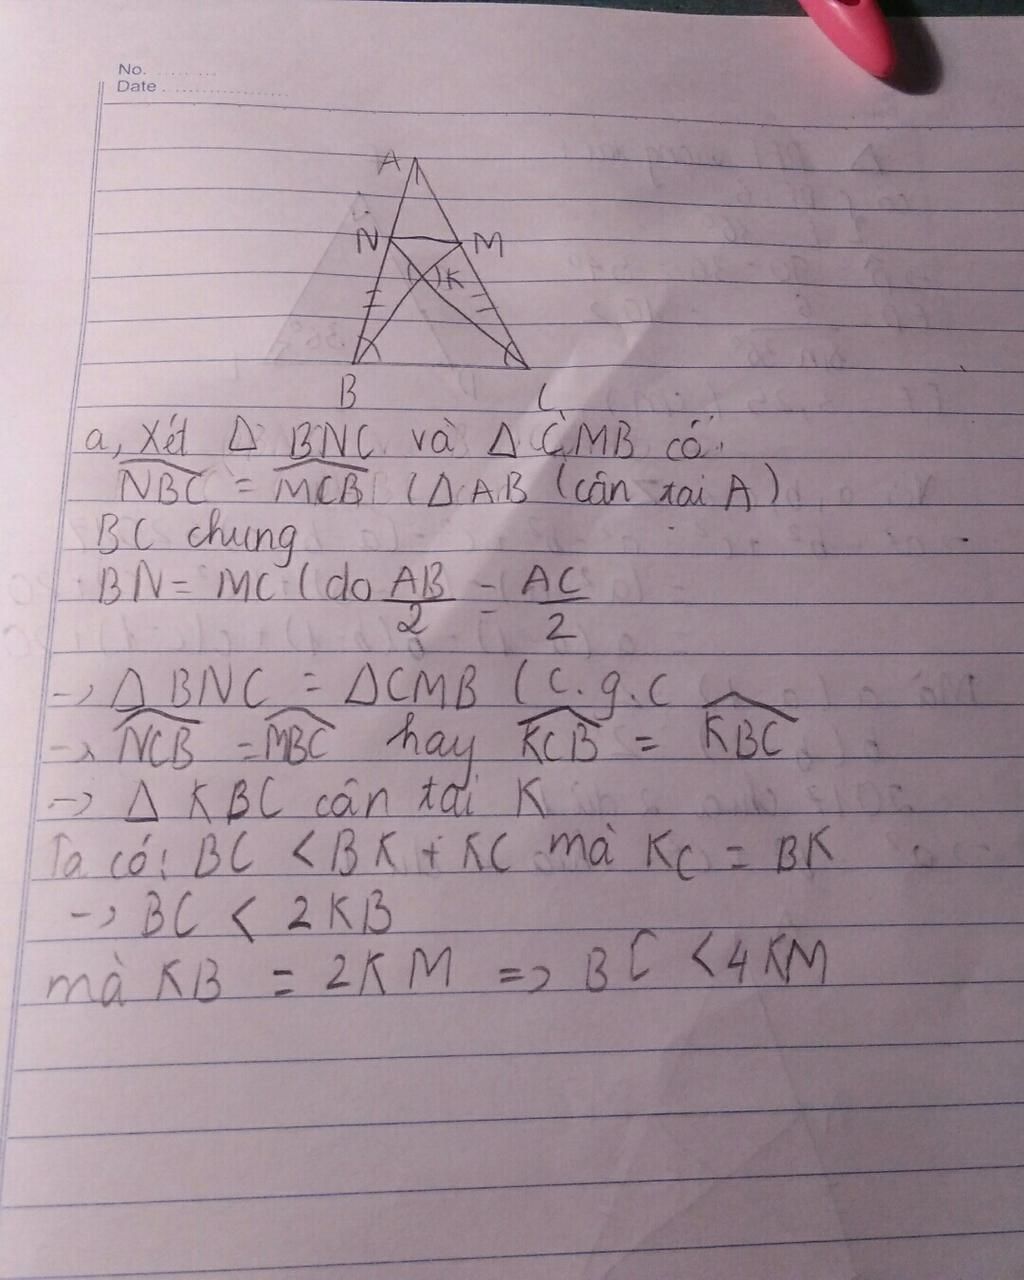 No. ........
Date ..................
A
N M
K
B C
a, Xét Δ BNC và Δ CMB có:
NBC = MCB (Δ AB (cân tại A)
BC chung
BN = MC (do AB/2 = AC/2
-> Δ BNC = ΔCMB (c.g.c
-> NCB = MBC hay KCB = KBC
-> Δ KBC cân tại K
Ta có: BC < BK + KC mà KC = BK
-> BC < 2KB
mà KB = 2KM => BC < 4KM